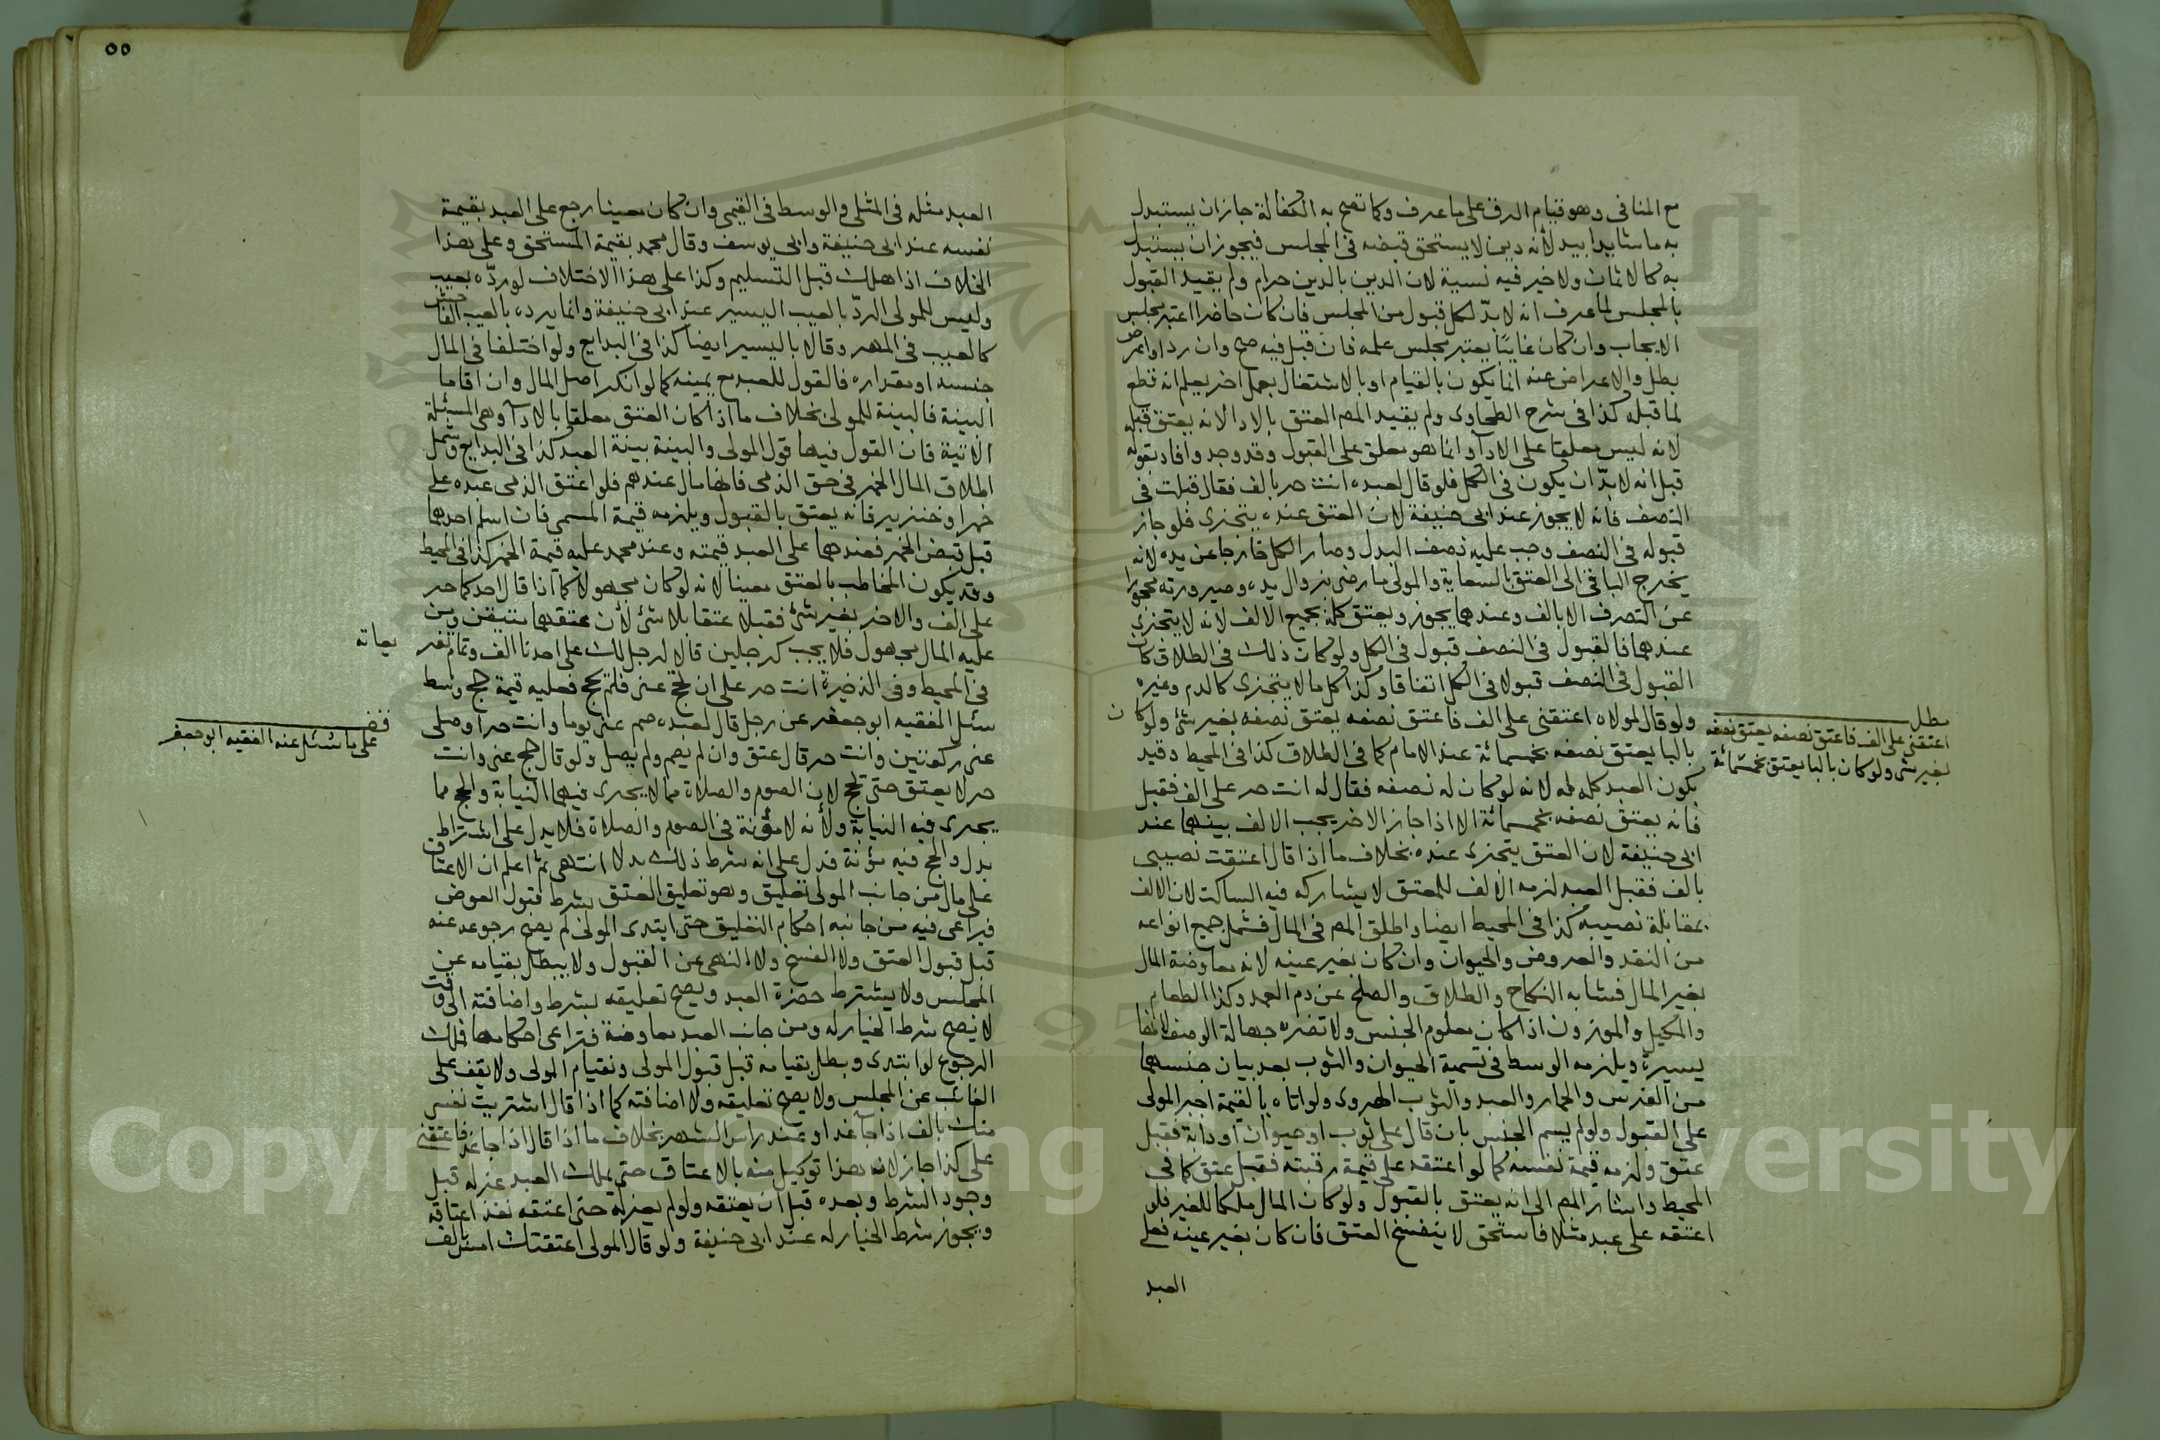 مع المنافي وهو قيام الرق على ما عرف وكما تصح به الكفالة جاز ان يستبدل
به ما شا يدا بيد لأنه دين لا يستحق قبضه في المجلس فيجوز ان يستبدل
به كالاثمان ولا خير فيه نسية لان الدين بالدين حرام ولم يقيد القبول
بالمجلس لما عرف انه لا بدّ لكل قبول من المجلس فان كان حاضرا اعتبر مجلس
الايجاب وان كان غايبًا يعتبر مجلس علمه فان قبل فيه صح وان رد او اعرض
بطل والاعراض عنه انما يكون بالقيام او بالاشتغال بعمل اخر يعلم انه قطع
لما قبله كذا في شرح الطحاوي ولم يقيد المص العتق بالادا لانه يعتق قبله
لانه ليس معلقا على الادآ وانما هو معلق على القبول وقد وجد وافاد بقوله
قبل انه لا بدّ ان يكون في الكل فلو قال لعبده انت حر بالف فقال قبلت في
النصف فانه لا يجوز عند ابي حنيفة لان العتق عنده يتجزى فلو جاز
قبوله في النصف وجب عليه نصف البدل وصار الكل خارجا عن يده لانه
يخرج الباقي الى العتق بالسعاية والمولى ما رضي بزوال يده وصيرورته محجورا
عن التصرف الا بالف وعندهما يجوز ويعتق كله بجميع الالف لانه لا يتجزى
عندهما فالقبول في النصف قبول في الكل ولو كان ذلك في الطلاق كان
القبول في النصف قبولا في الكل اتفاقا وكذا كل ما لا يتجزى كالدم وغيره
ولو قال لمولاه اعتقني على الف فاعتق نصفه يعتق نصفه بغير شئ ولو كان
بالبا يعتق نصفه بخمسمائة عند الامام كما في الطلاق كذا في المحيط وقيد
بكون العبد كله له لانه لو كان له نصفه فقال له انت حر على الف فقبل
فانه يعتق نصفه بخمسمائة الا اذا جاز الاخر يجب الالف بينهما عند
ابي حنيفة لان العتق يتجزى عنده بخلاف ما اذا قال اعتقت نصيبي
بالف فقبل العبد لزمه الالف للمعتق لا يشاركه فيه الساكت لان الالف
بمقابلة نصيبه كذا في المحيط ايضا واطلق المص في المال فشمل جميع انواعه
من النقد والعروض والحيوان وان كان بغير عينه لانه معاوضة المال
بغير المال فشابه النكاح والطلاق والصلح عن دم العمد وكذا الطعام
والمكيل والموزون اذا كان معلوم الجنس ولا تضره جهالة الوصف لانها
يسيرة ويلزمه الوسط في تسمية الحيوان والثوب بعد بيان جنسهما
من الفرس والحمار والعبد والثوب الهروى ولو اتاه بالقيمة اجبر المولى
على القبول ولو لم يسم الجنس بان قال على ثوب او حيوان او دابة فقبل
عتق ولزمه قيمة نفسه كما لو اعتقه على قيمة رقبته فقبل عتق كما في
المحيط واشار المص الى انه يعتق بالقبول ولو كان المال ملكا للغير فلو
اعتقه على عبد مثلا فاستحق لا ينفسخ العتق فان كان بغير عينه فعلى
العبد
مطلب
اعتقني على الف فاعتق نصفه يعتق نصفه
بغير شئ ولو كان بالبا يعتق بخمسمائة
٥٥
العبد مثله في المثلي والوسط في القيمي وان كان معينا رجع على العبد بقيمة
نفسه عند ابي حنيفة وابي يوسف وقال محمد بقيمة المستحق وعلى هذا
الخلاف اذا هلك قبل التسليم وكذا على هذا الاختلاف لو ردّه بعيب
وليس للمولى الردّ بالعيب اليسير عند ابي حنيفة وانما يرده بالعيب الفاحش
كالعيب في المهر وقالا باليسير ايضا كذا في البدايع ولو اختلفا في المال
جنسه او مقداره فالقول للعبد مع يمينه كما لو انكر اصل المال وان اقاما
البينة فالبينة للمولى بخلاف ما اذا كان العتق معلقا بالادآ وهي المسئلة
الاتية فان القول فيها قول المولى والبينة بينة العبد كذا في البدايع وشمل
اطلاق المال الخمر في حق الذمي فانها مال عندهم فلو اعتق الذمي عبده على
خمر او خنزير فانه يعتق بالقبول ويلزمه قيمة المسمى فان اسلم احدهما
قبل قبض الخمر فعندهما على العبد قيمته وعند محمد عليه قيمة الخمر كذا في المحيط
وقد يكون المخاطب بالعتق معينا لانه لو كان مجهولا كما اذا قال احدكما حر
على الف والاخر بغير شئ فقبلا عتقا بلا شئ لأن عتقهما متيقن ومن
عليه المال مجهول فلا يجب كرجلين قالا لرجل لك على احدنا الف وتمام تفريعاته
في المحيط وفي الذخيرة انت حر على ان تحج عني فلم يحج فعليه قيمة حج وسط
سئل الفقيه ابو جعفر عن رجل قال لعبده صم عني يوما وانت حر او صلي
عني ركعتين وانت حر قال عتق وان لم يصم ولم يصل ولو قال حج عني وانت
حر لا يعتق حتى يحج لان الصوم والصلاة مما لا يجرى فيهما النيابة والحج مما
يجرى فيه النيابة ولأنه لا مؤنة في الصوم والصلاة فلا يدل على اشتراط
بدل والحج فيه مؤنة فدل على انه شرط ذلك بدلا انتهى ثم اعلم ان الاعتاق
على مال من جانب المولى تعليق وهو تعليق العتق بشرط قبول العوض
فيراعى فيه من جانبه احكام التعليق حتى ابتدى المولى لم يصح رجوعه عنه
قبل قبول العتق ولا الفسخ ولا النهى عن القبول ولا يبطل بقيامه عن
المجلس ولا يشترط حضرة العبد ويصح تعليقه بشرط واضافته الى وقت
لا يصح شرط الخيار له ومن جانب العبد معاوضة فتراعى احكامها فملك
الرجوع لو ابتدى وبطل بقيامه قبل قبول المولى وبقيام المولى ولا يقف على
الغائب عن المجلس ولا يصح تعليقه ولا اضافته كما اذا قال اشتريت نفسي
منك بالف اذا جآ غد او عند راس الشهر بخلاف ما اذا قال اذا جا غد فاعتقني
على كذا جاز لانه هذا توكيل منه بالاعتاق حتى يملك العبد عزله قبل
وجود الشرط وبعده قبل ان يعتقه ولو لم يعزله حتى اعتقه نفذ اعتاقه
ويجوز شرط الخيار له عند ابي حنيفة ولو قال المولى اعتقتك امس بالف
قف
على ما سئل عنه الفقيه ابو جعفر